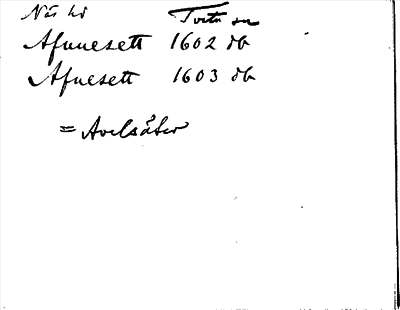 Näs hd Tveta sn
Afnnesett 1602 db
Afnesett 1603 db
= Avelsäter